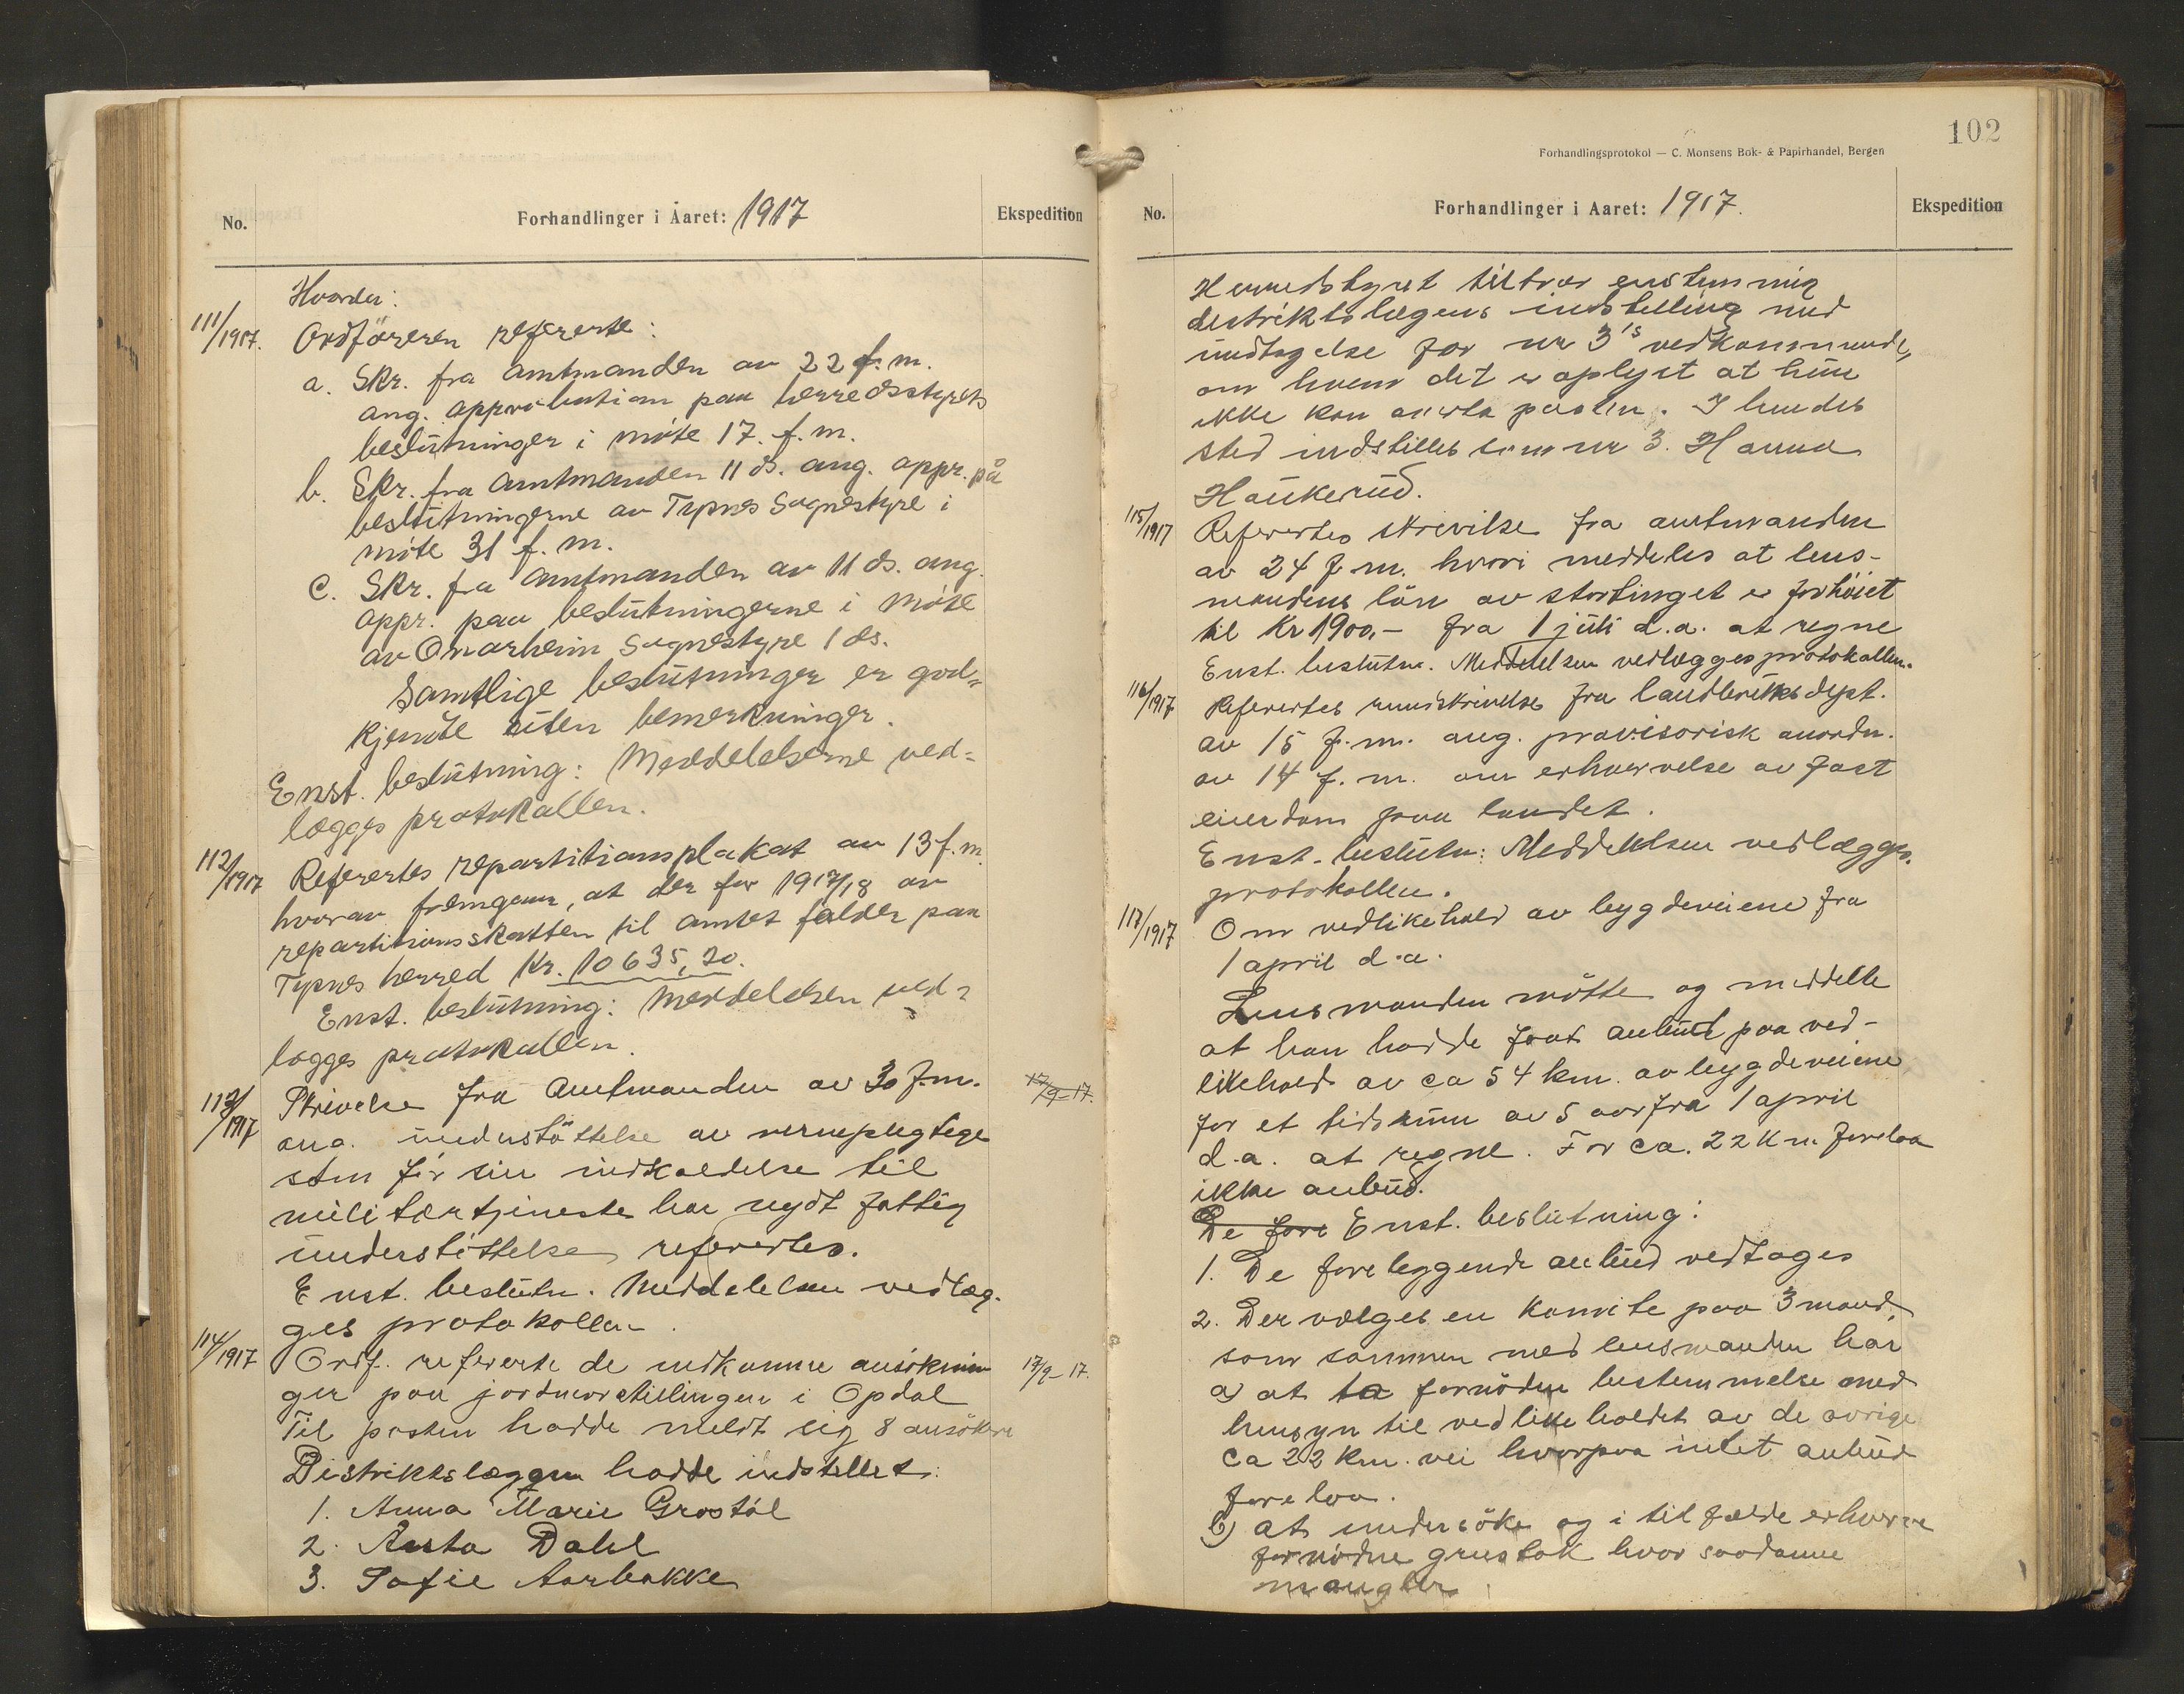 No.
Forhandlinger i Aaret: 1917
Ekspedition
Hvorder:
111/1917. Ordføreren refererte:
a. Skr. fra amtmanden av 22 f.m.
ang. approbation paa herredsstyrets
beslutninger i møte 17. f.m.
b. Skr. fra amtmanden 11 ds. ang. appr. på
beslutningerne av Tysnes Sognestyre i
møte 31 f.m.
c. Skr. fra amtmanden av 11 ds. ang.
appr. paa beslutningerne i møte
av Onarheim Sognestyre 1 ds.
Samtlige beslutninger er god-
kjendte uten bemerkninger.
Enst. beslutning: Meddelelserne ved-
lægges protokollen.
112/1917 Referertes repartitionsplakat av 13 f.m.
hvorav fremgaar, at der for 1917/18 av
repartitionsskatten til amtet falder paa
Tysnes herred Kr. 10635,20.
Enst. beslutning: Meddelelsen ved-
lægges protokollen.
113/1917 Skrivelse fra Amtmanden av 30 f.m. 17/9-17.
ang. understöttelse av vernepligtige
som før sin indkaldelse til
militærtjeneste har nydt fattig
understöttelse referertes.
Enst. beslutn. Meddelelsen vedlæg-
ges protokollen.
114/1917 Ordf. refererte de indkomne ansøknin 17/9-17.
ger paa jordmorstillingen i Opdal
Til posten hadde meldt sig 8 ansøkere
Distriktslægen hadde indstillet:
1. Anna Marie Grostöl
2. Asta Dahl
3. Sofie Aarbakke
102
Forhandlingsprotokol — C. Monsens Bok- & Papirhandel, Bergen
No.
Forhandlinger i Aaret: 1917.
Ekspedition
Herredstyret tiltrær enstemmig
distriktslægens indstilling med
undtagelse for nr 3's vedkommende,
om hvem det er oplyst at hun
ikke kan motta posten. I hendes
sted indstilles som nr 3. Hanna
Haukerud.
115/1917 Referertes skrivelse fra amtmanden
av 24 f.m. hvori meddeles at lens-
mandens lön av stortinget er forhöiet
til Kr 1900,- fra 1 juli d.a. at regne
Enst. beslutn. Meddelelsen vedlægges protokollen.
116/1917 Referertes rundskrivelse fra landbruksdept.
av 15 f.m. ang. provisorisk anordn.
av 14 f.m. om erhvervelse av fast
eiendom paa landet.
Enst. beslutn: Meddelelsen vedlægges
protokollen.
117/1917 Om vedlikehold av bygdeveiene fra
1 april d.a.
Lensmanden mötte og meddelte
at han hadde faat anbud paa ved-
likehold av ca 54 km. av bygdeveiene
for et tidsrum av 5 aar fra 1 april
d.a. at regne. For ca. 22 km. forelaa
ikke anbud.
De fore Enst. beslutning:
1. De foreliggende anbud vedtages
2. Der vælges en komite paa 3 mand
som sammen med lensmanden har
a) at ta fornödne bestemmelse med
hensyn til vedlikeholdet av de øvrige
ca 22 km. vei hvorpaa intet anbud
forelaa.
b) at undersöke og i tilfælde erhverve
fornödne grustak hvor saadanne
mangler